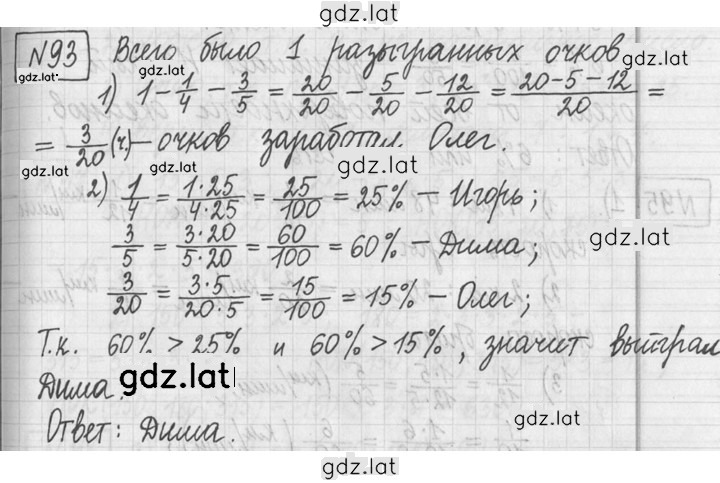 gdz.lat
№93 Всего было 1 разыгранных очков
gdz.lat
1) 1 - 1/4 - 3/5 = 20/20 - 5/20 - 12/20 = (20-5-12)/20 =
gdz.lat
= 3/20 (ч.) - очков заработал Олег.
gdz.lat gdz.lat gdz.lat
2) 1/4 = (1·25)/(4·25) = 25/100 = 25% - Игорь;
3/5 = (3·20)/(5·20) = 60/100 = 60% - Дима;
gdz.lat
3/20 = (3·5)/(20·5) = 15/100 = 15% - Олег;
Т.к. 60% > 25% и 60% > 15%, значит выиграл
Дима.
gdz.lat
Ответ: Дима.
gdz.lat
gdz.lat